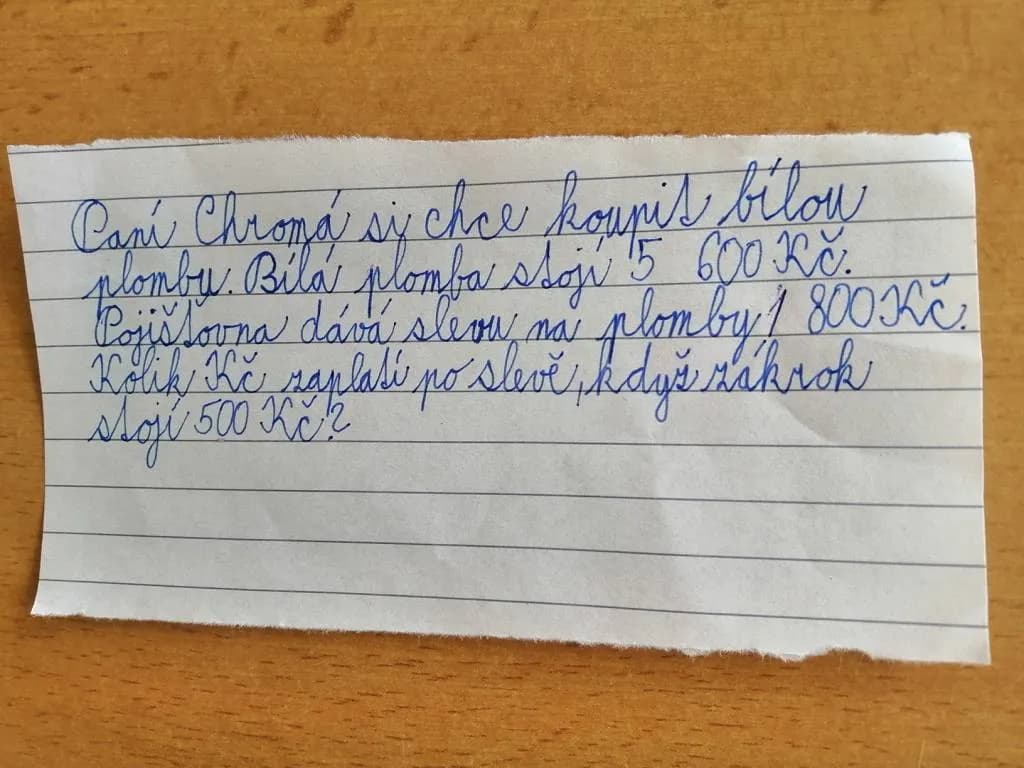 Paní Chromá si chce koupit bílou
plombu. Bílá plomba stojí 5 600 Kč.
Pojišťovna dává slevu na plomby 1 800 Kč.
Kolik Kč zaplatí po slevě, když zákrok
stojí 500 Kč?